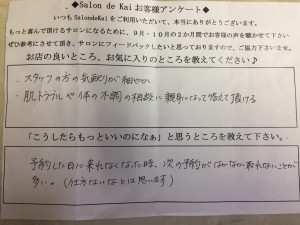 ◆Salon de Kai お客様アンケート◆
いつもSalondeKaiをご利用いただいて、本当にありがとうございます。
もっと喜んで頂けるサロンになるために、9月・10月の2か月間でお客様の声を聴かせて下さい
ぜひ参考にさせて頂き、サロンにフィードバックしたいと思っておりますので、ご協力下さいませ。
お店の良いところ、お気に入りのところを教えてください♪
・スタッフの方の気配りが細やか
・肌トラブルや体の不調の相談に親身になって答えて頂ける
「こうしたらもっといいのになぁ」と思うところを教えて下さい。
予約した日に来れなくなった時、次の予約がなかなか取れないことが
多い。(仕方ないなとは思います)